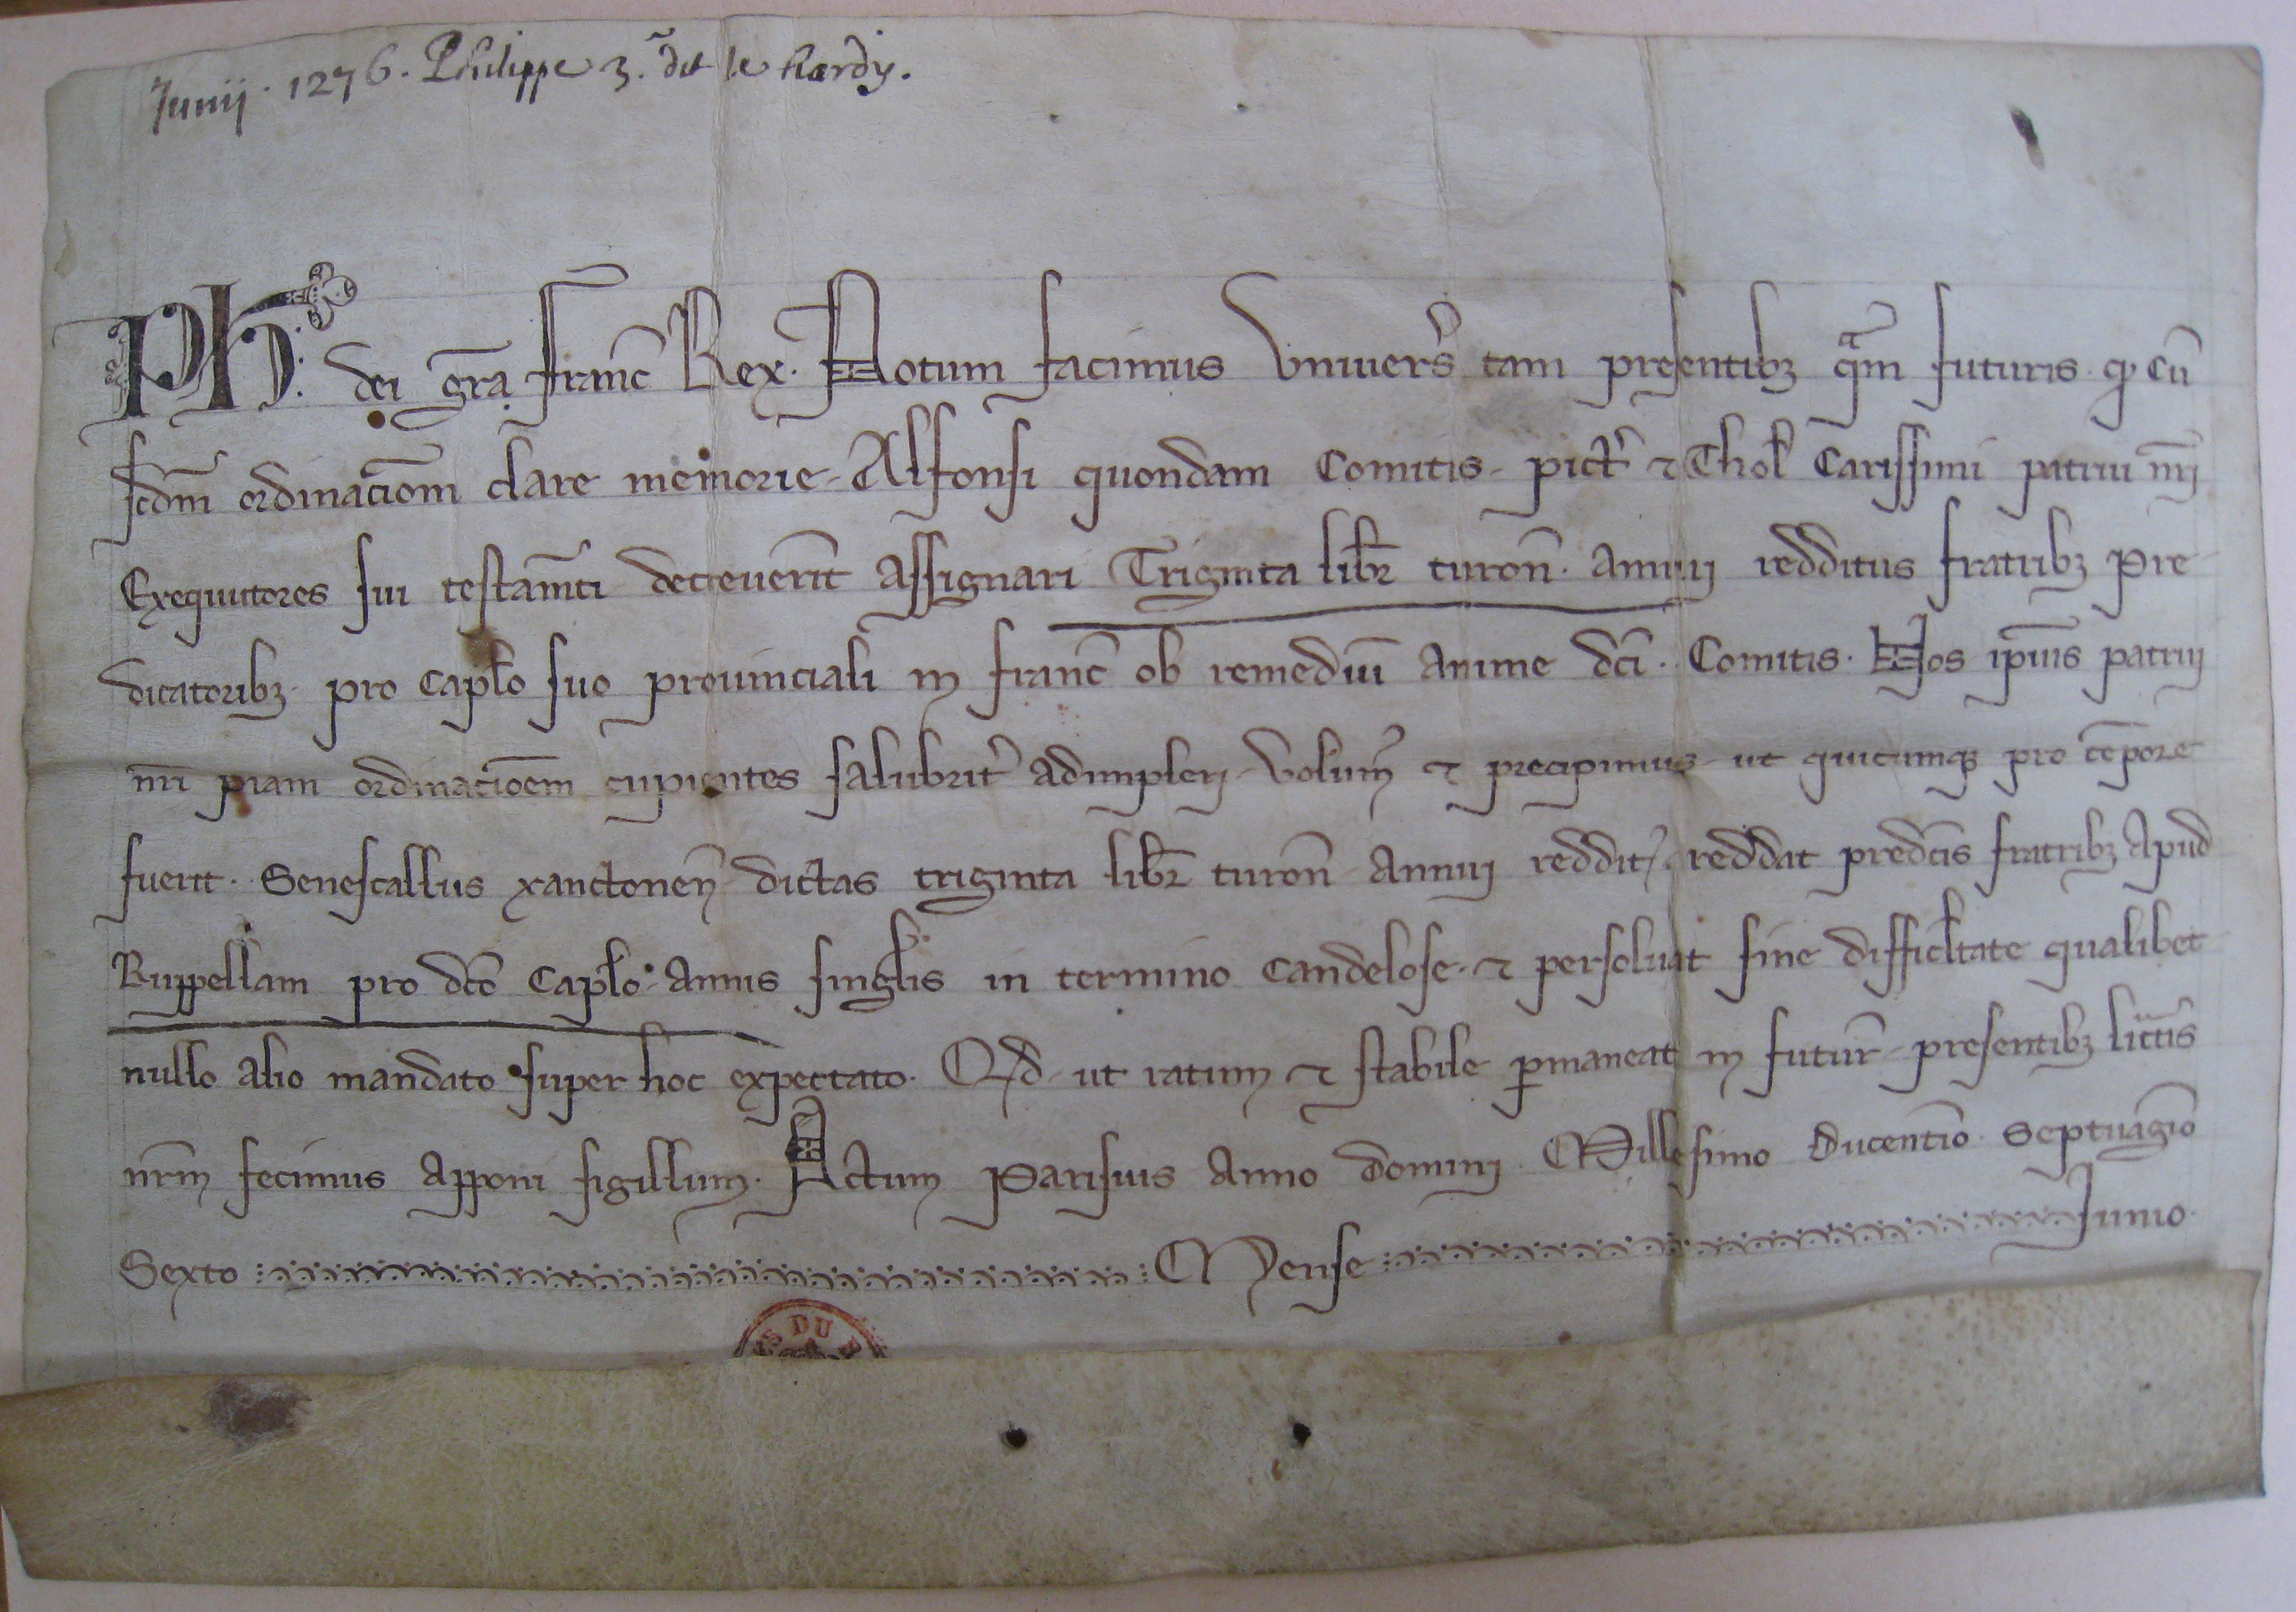 Junij. 1276. Philippe 3.e dit le hardy.
Ph: dei gra Franc Rex. Notum facimus Universis tam presentibꝫ qam futuris. qd cũ
scdm ordinacõm clare memorie. Alfonsi quondam Comitis. pict᾽ ⁊ Thol Carissimi patrui nri
Exequutores sui testamti decreuerit assignari Triginta libr turon. annui redditus fratribꝫ Pre
dicatoribꝫ. pro caplo suo prouinciali in Franc ob remediũ anime dci. Comitis. Nos ipius patrui
nri piam ordinacõem cupientes salubrit᾽ adimpleri. Volum᾽ ⁊ precipimus. ut quicumqꝫ pro tẽpore
fuerit. Senescallus xanctonen dictas triginta libr turon annui reddit᾽. reddat predcis fratribꝫ apud
Ruppellam pro dco caplo. annis singlis in termino Candelose. ⁊ persoluat sine difficltate qualibet
nullo alio mandato super hoc expectato. Qd ut ratum ⁊ stabile pmaneat in futur. presentibꝫ littis
nrm fecimus apponi sigillum. Actum Parisius anno domini. Millesimo Ducentio. Septuagio
Sexto Mense Junio.
DU